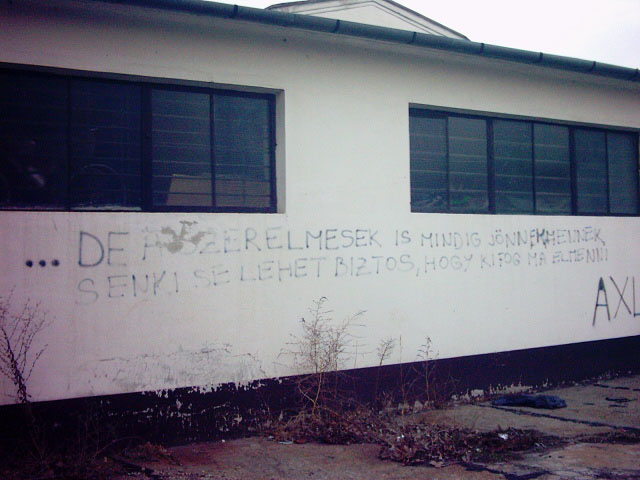 ... DE A SZERELMESEK IS MINDIG JÖNNEK MENNEK
SENKI SE LEHET BIZTOS, HOGY KI FOG MA ELMENNI
AXL